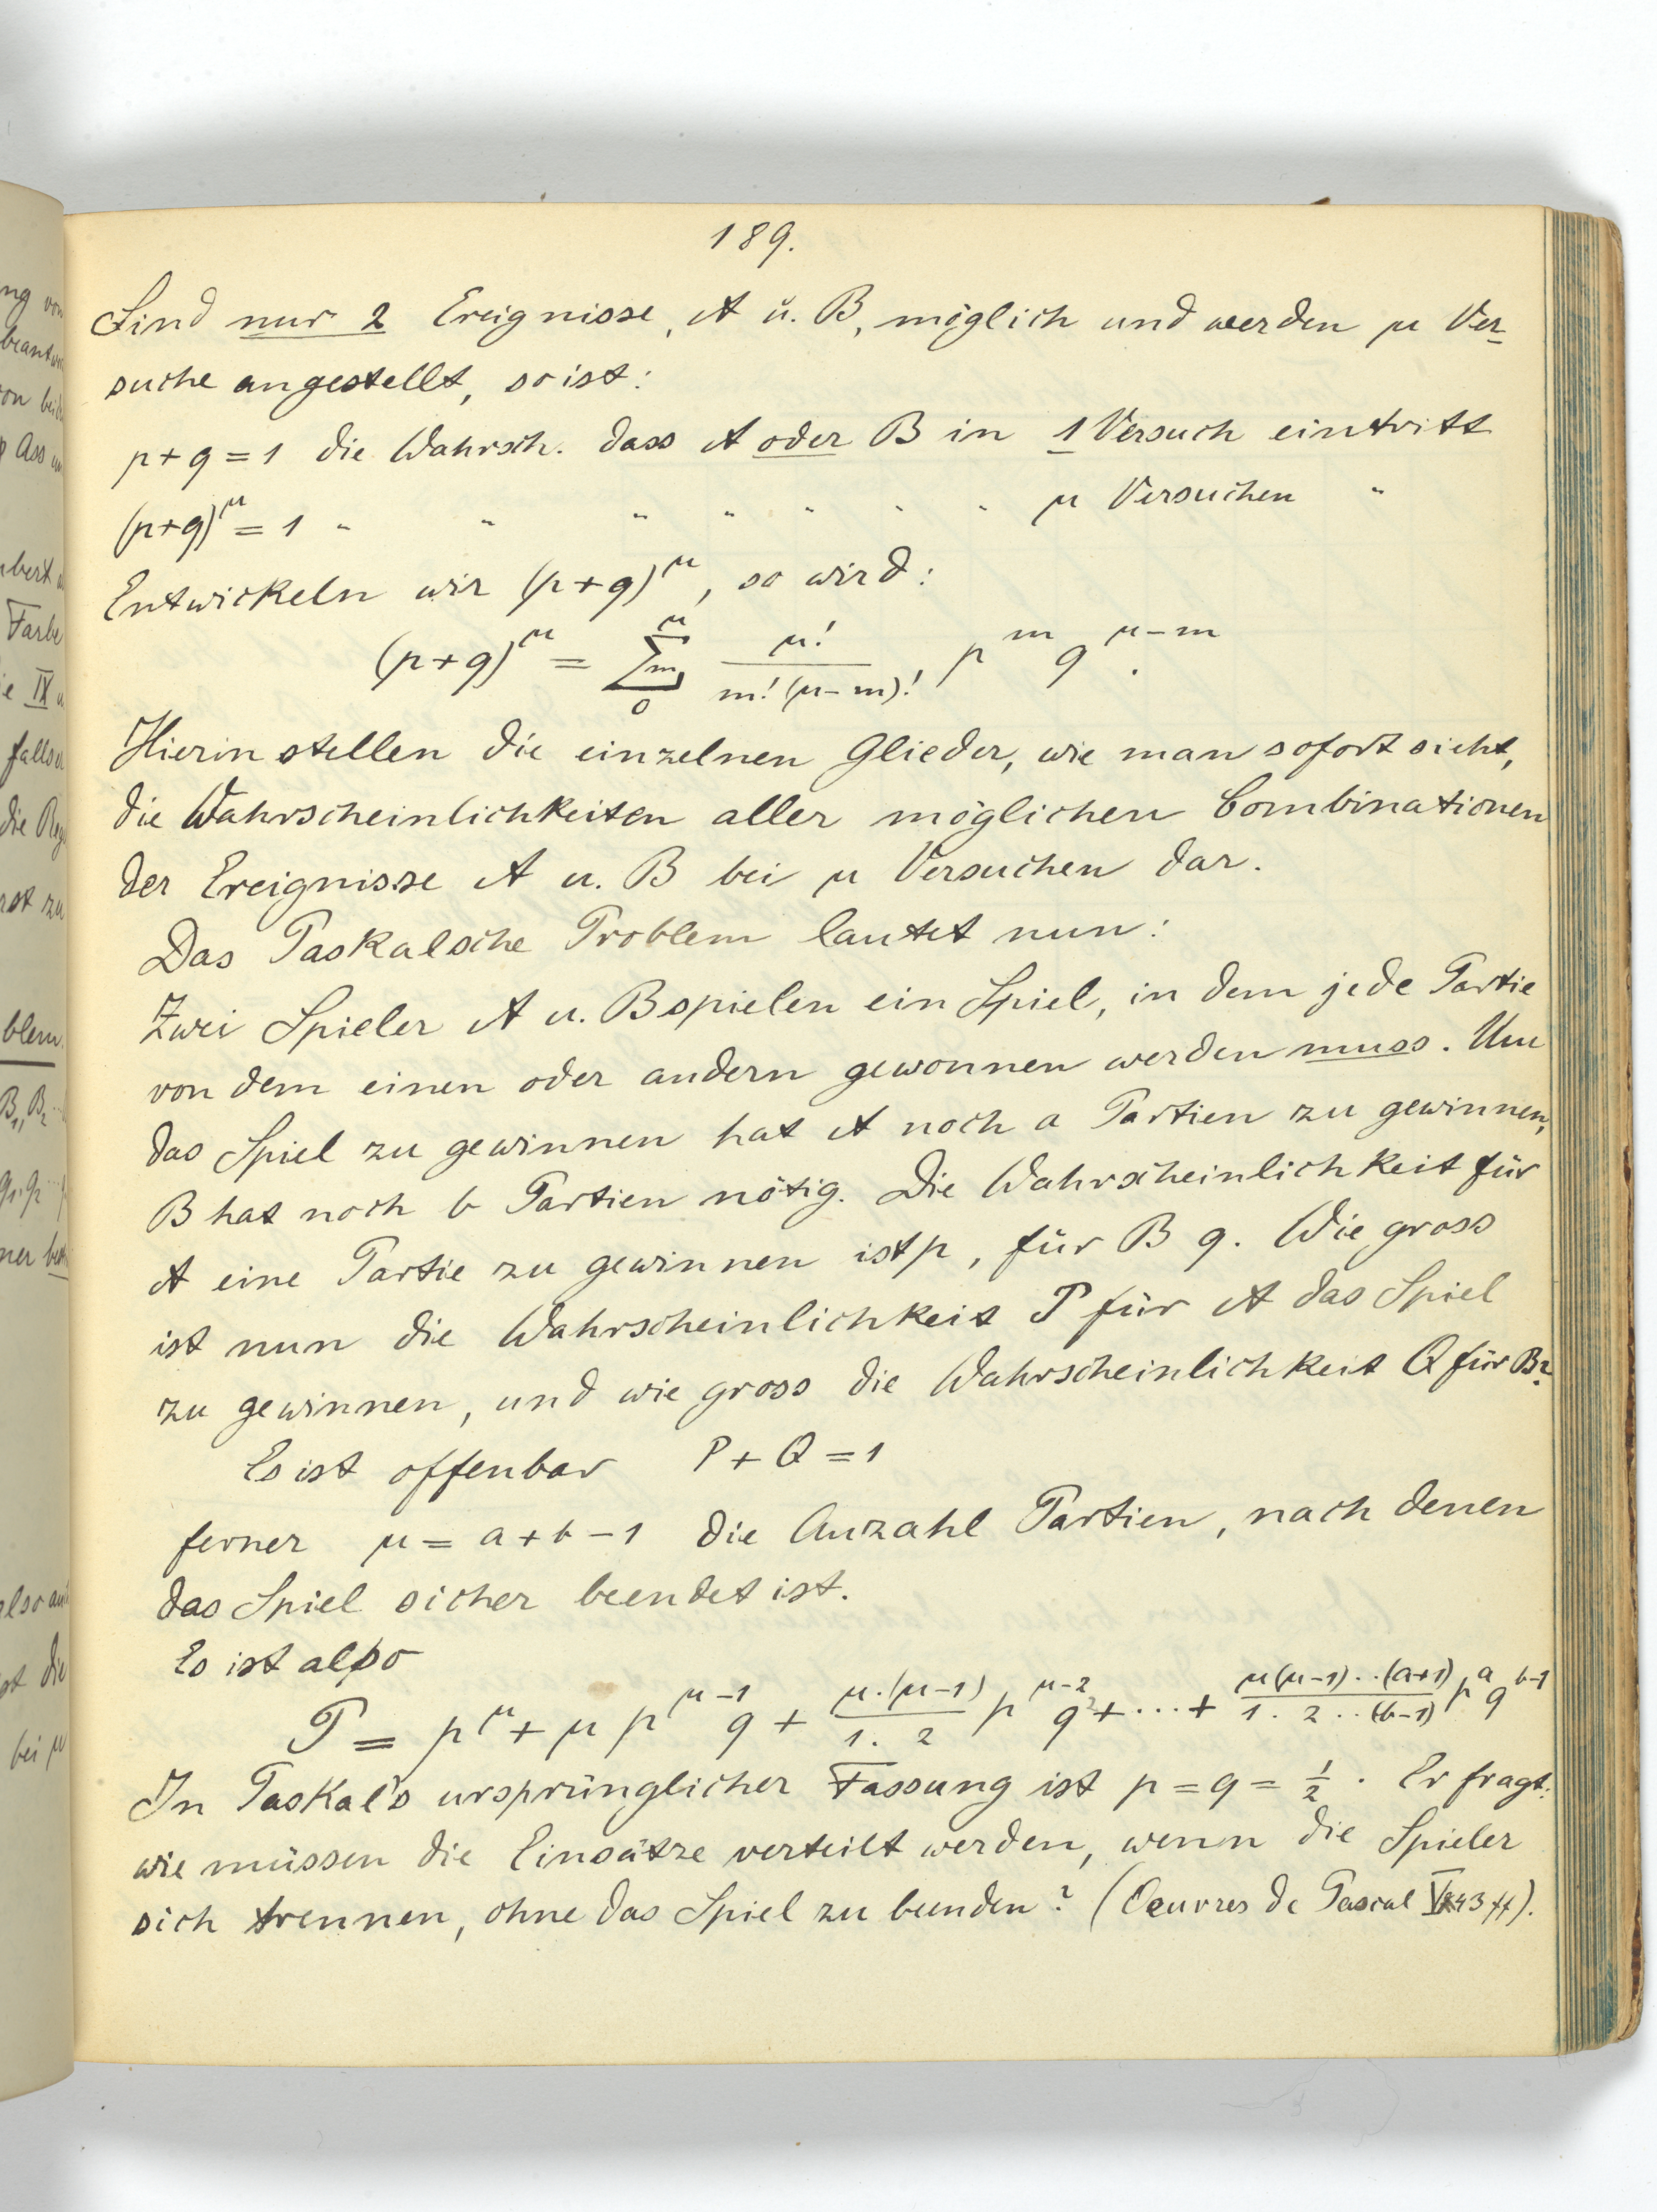 189.
Sind nur 2 Ereignisse, A u. B, möglich und werden μ Ver-
suche angestellt, so ist:
p+q=1 die Wahrsch. dass A oder B in 1 Versuch eintritt
(p+q)^μ = 1 " " " " " " " μ Versuchen "
Entwickeln wir (p+q)^μ, so wird:
(p+q)^μ = Σ_m_0^μ μ!/(m!(μ-m)!) p^m q^(μ-m).
Hierin stellen die einzelnen Glieder, wie man sofort sieht,
die Wahrscheinlichkeiten aller möglichen Combinationen
der Ereignisse A u. B bei μ Versuchen dar.
Das Paskalsche Problem lautet nun:
Zwei Spieler A u. B spielen ein Spiel, in dem jede Partie
von dem einen oder andern gewonnen werden muss. Um
das Spiel zu gewinnen hat A noch a Partien zu gewinnen,
B hat noch b Partien nötig. Die Wahrscheinlichkeit für
A eine Partie zu gewinnen ist p, für B q. Wie gross
ist nun die Wahrscheinlichkeit P für A das Spiel
zu gewinnen, und wie gross die Wahrscheinlichkeit Q für B?
Es ist offenbar P+Q=1
ferner μ = a+b-1 die Anzahl Partien, nach denen
das Spiel sicher beendet ist.
Es ist also
P = p^μ + μ p^(μ-1) q + μ.(μ-1)/1.2 p^(μ-2) q^2 + ... + μ(μ-1)..(a+1)/1.2..(b-1) p^a q^(b-1)
In Paskal's ursprünglicher Fassung ist p=q=1/2. Er fragt:
wie müssen die Einsätze verteilt werden, wenn die Spieler
sich trennen, ohne das Spiel zu beenden? (Oeuvres de Pascal 43 ff).